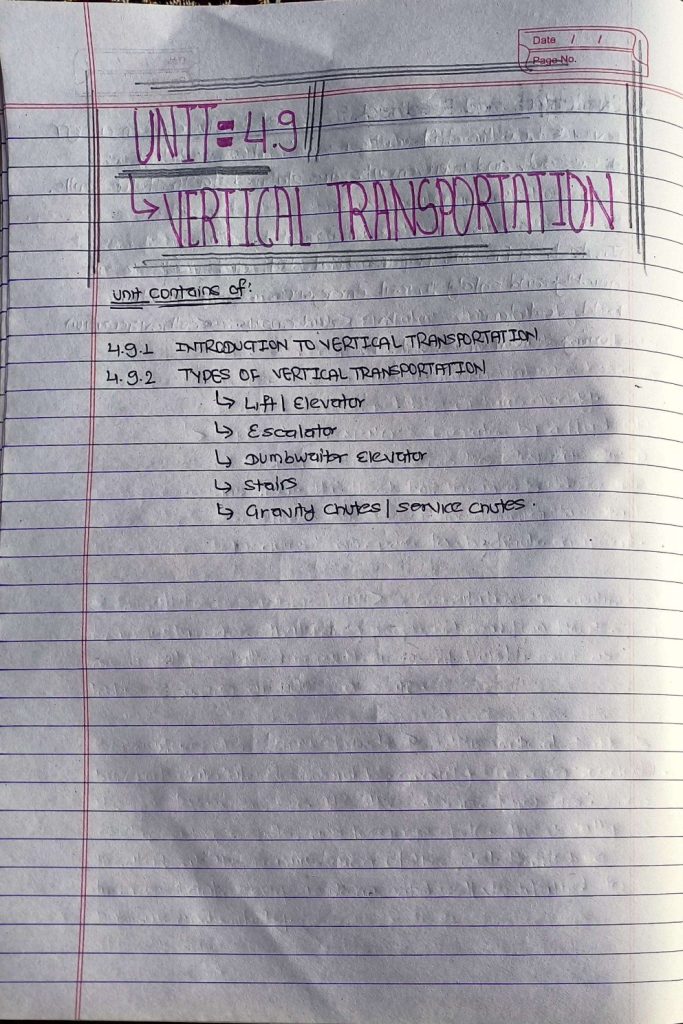 Date / /
Page No.
UNIT = 4.9
↳ VERTICAL TRANSPORTATION
Unit contains of:
4.9.1 INTRODUCTION TO VERTICAL TRANSPORTATION
4.9.2 TYPES OF VERTICAL TRANSPORTATION
↳ Lift | Elevator
↳ Escalator
↳ Dumbwaiter Elevator
↳ Stairs
↳ Gravity chutes | service chutes.